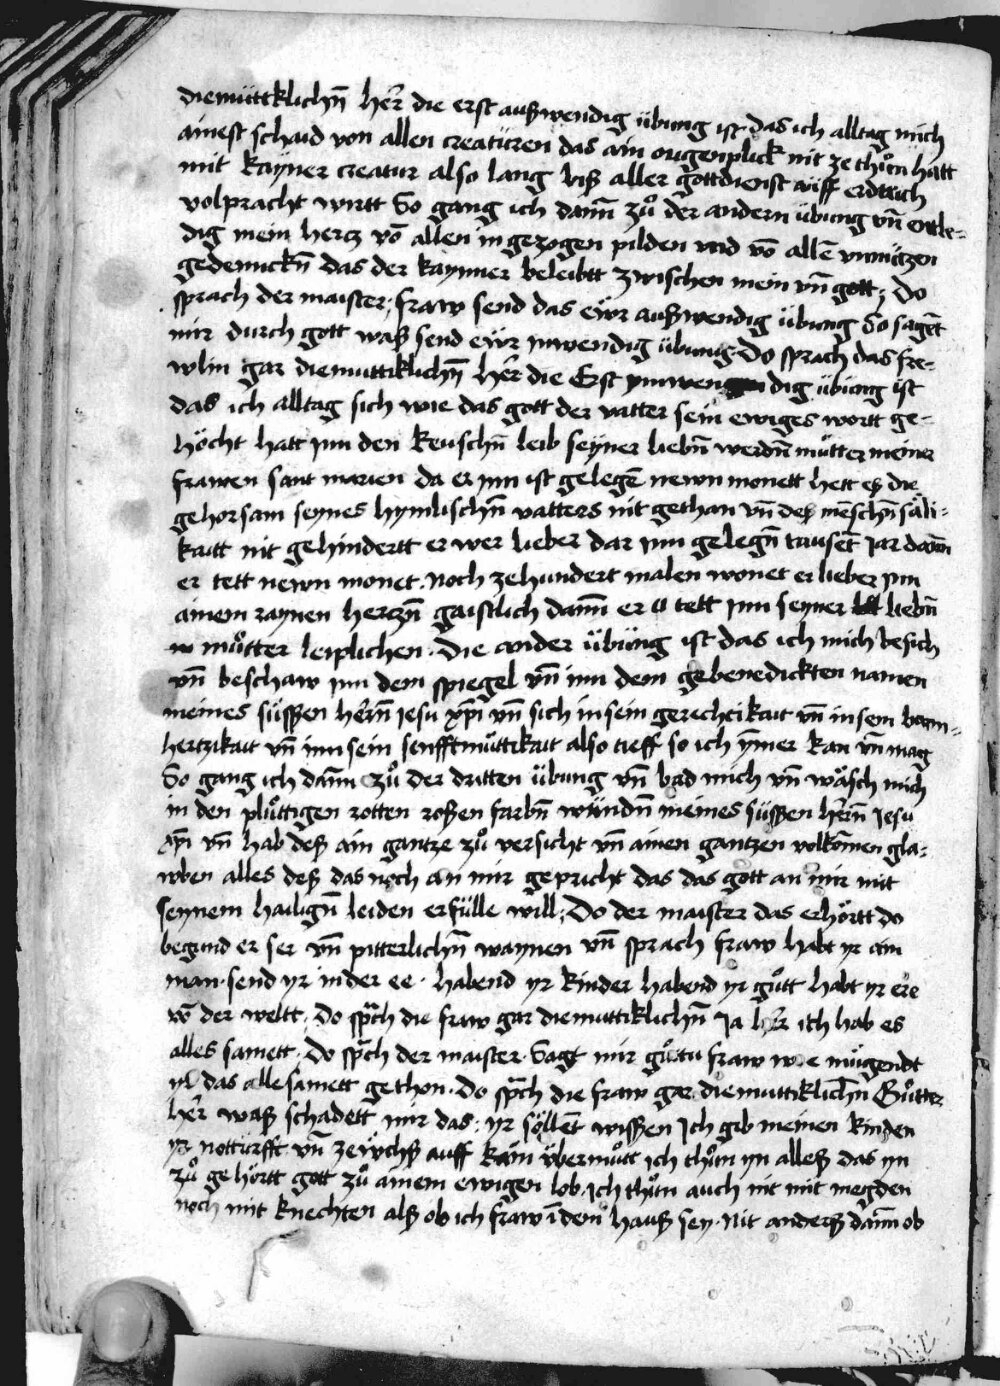 diemüttklichn̄ her̄ die erst außwendig übung ist das ich alltag mich
ainest schaid von allen creatüren das ain ougenplick nit ze thůn hatt
mit kayner creatur also lang biß aller gottdienst auff erdtrich
volpracht wirtt So gang ich dann̄ zů der andern übung vn̄ entle-
dig mein hercz vō allen in gezogen pilden vnd vō allē vnnützen
gedennckn̄ das der kaynner beleibtt zwischen mein vn̄ gott, Do
sprach der maister, fraw send das ewr außwendig übung So sagēt
mir durch gott waß send ewr ynwendig übung Do sprach das fre-
wlin gar diemuttiklichn̄ her̄ die Erst ynnwen dig übung ist
das ich alltag sich wie das gott der vatter sein ewiges wortt ge-
höcht hatt jnn den keuschn̄ leib seyner liebn̄ werdn̄ můtter meiner
frawen sant marien da er jnn ist gelegē newn monett hett eß die
gehorsam seynes hymlischn̄ vatters nit gethan vn̄ deß mēschn̄ säli-
kaitt nit gehindertt er wer lieber dar jnn gelegn̄ tausēt jar dann̄
er tett newn monet. noch zehundert malen wonet er lieber ynn
ainem raynen herczn̄ gaistlich dann̄ er tett jnn seyner liebn̄
můtter leiplichen. Die ander übung ist das ich mich besich
vn̄ beschaw jnn dem spiegel vn̄ jnn dem gebenedickten namen
meines süssen hern̄ jesu xp̄i vn̄ sich in sein gerechtikait vn̄ in sein barm-
hertzikait vn̄ jnn sein senfftmůttikait also tieff so ich ymer kan vn̄ mag
So gang ich dann̄ zů der dritten übung vn̄ bad mich vn̄ wäsch mich
in den plůttigen rotten roßen farbn̄ wundn̄ meines süssen hern̄ jesu
xp̄i vn̄ hab deß ain gantze zů versicht vn̄ ainen gantzen volkōmen gla-
wben alles deß das noch an mir gepricht das das gott an mir mit
seynem hailign̄ leiden erfülle will, Do der maister das erhörtt do
begund er ser vn̄ pitterlichn̄ waynen vn̄ sprach fraw habt yr ain
man. send yr in der ee. habend yr kinder habend yr gůtt habt yr ere
vō der weltt, Do sp̄ch die fraw gar diemuttiklichn̄ Ja her̄ ich hab es
alles samett. Do sp̄ch der maister. Sagt mir gůtu fraw wie mügendt
yr das alle samett gethon. Do sp̄ch die fraw gar diemuttiklichn̄ Gůtter
her̄ waß schadett mir das: yr söllēt wissen Ich gib meinen kinden
yr notturfft vn̄ ze wchß auff kain übermůtt ich thůn yn alleß das yn
zů gehörtt gott zů ainem ewigen lob. Ich thůn auch nit mit megden
noch mit knechten alß ob ich fraw ī dem hauß sey. Nit anderß dann̄ ob